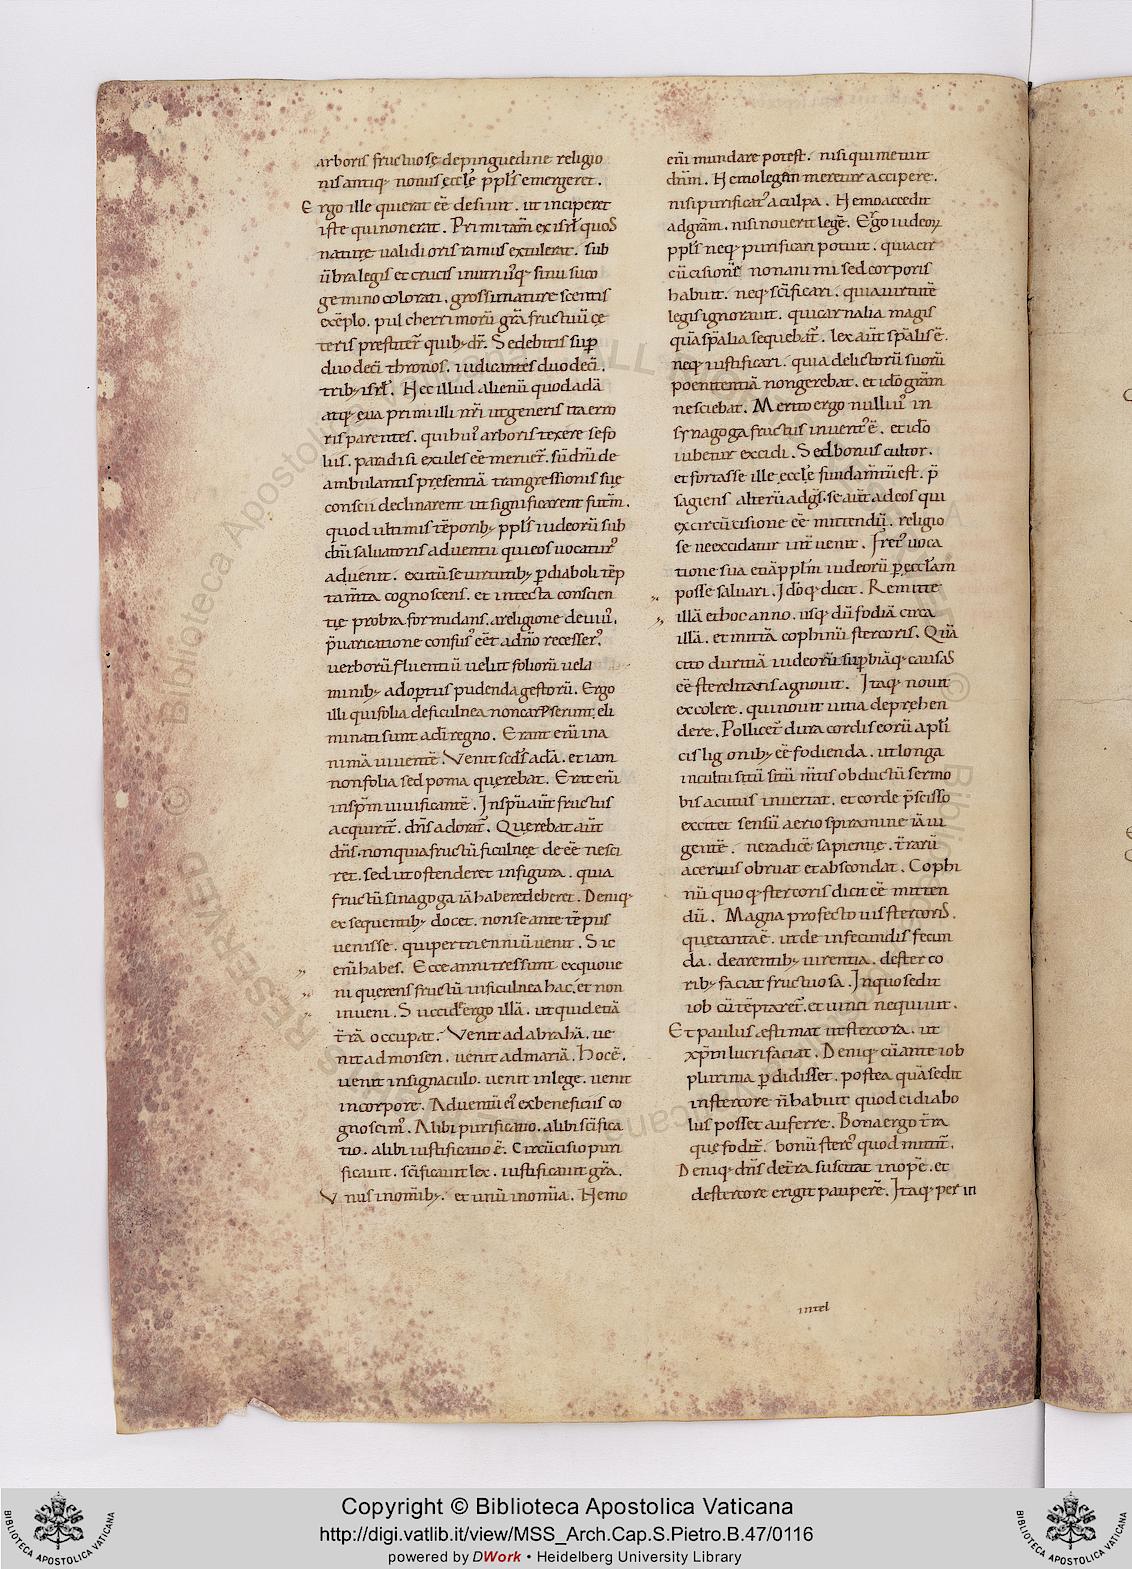 arboris fructuosę depinguedine religio
nis antiq; nouus ęccłę ppłs emergeret.
Ergo ille qui erat eē desiuit. ut inciperet
iste qui non erat. Primitiā ex isrł quos
naturę ualidioris ramus extulerat. sub
ūbra legis et crucis in utriusq; sinu suco
gemino colorati. grossi maturescentis
exēplo. pulcherrimorū grā fructuū cę
teris prestiterṫ quib; dr̄. Sedebitis sup
duodecī thronos. iudicantes duodecī
trib; isrł. Nec illud alienū quod adā
atq; eua primi illi nr̄i ut generis ita erro
ris parentes. quibus arboris texere se fo
liis. paradisi exules eē meruer̄. sūdnī de
ambulantis pręsentiā transgressionis suę
conscii declinarent ut significarent futm̄.
quod ultimis tēporib; ppłs iudeorū sub
dn̄i saluatoris aduentu qui eos uocaturus
aduenit. exutū se uirtutib; p diaboli tēp
tam̄ta cognoscens. et intecta conscien
tię probra formidans. a religione deuius.
p̄uaricatione confusus eēt a dn̄o recesserus
uerborū fluentiū uelut foliorū uela
minib; adopertus pudenda gestorū. Ergo
illi qui folia de ficulnea non carpserunt. eli
minati sunt a dī regno. Erant enī in a
nimā uiuentē. Venit scds adā. et iam
non folia sed poma querebat. Erat enī
in spm uiuificantē. In spū aut̄ fructus
acquirit̄. dn̄s adorat̄. Querebat aut̄
dn̄s. non quia fructū ficulneę deeē nesci
ret. sed ut ostenderet in figura. quia
fructū sinagoga iā habere deberet. Deniq;
ex sequentib; docet. non se ante tēpus
uenisse. qui per triennium uenit. Sic
enī habes. Ecce anni tres sunt ex quo ue
ni querens fructū in ficulnea hac. et non
inueni. Succide ergo illā. ut quid etiā
tr̄ā occupat. Venit ad abrahā. ue
nit ad moisen. uenit ad mariā. Hoc ē.
uenit in signaculo. uenit in lege. uenit
in corpore. Aduentū eius ex beneficiis co
gnoscimus. Alibi purificatio. alibi scīfica
tio. alibi iustificatio ē. Circūcisio puri
ficauit. scīficauit lex. iustificauit grā.
Vnus in omib;. et unū in omia. Nemo
enī mundare potest. nisi qui metuit
dnm̄. Nemo legem meretur accipere.
nisi purificatus a culpa. Nemo accedit
ad grām. nisi nouerit legē. Ergo iudeoꝝ
ppłs neq; purificari potuit. quia cir
cūcisionē non animi sed corporis
habuit. neq; scīficari. quia uirtutē
legis ignorauit. qui carnalia magis
quā spālia sequebat̄. lex aut̄ spālis ē.
neq; iustificari. quia delictorū suorū
poenitentiā non gerebat. et ido grām
nesciebat. Merito ergo nullus in
synagoga fructus inuentus ē. et ido
iubetur excidi. Sed bonus cultor.
et fortasse ille ęccłę fundam̄tū est. p̄
sagiens alterū ad gs̄. se aut̄ ad eos qui
ex circūcisione eē mittendū. religio
se ne excidatur int̄uenit. Iret; uoca
tione sua etiā ppłm iudeorū p ęccłam
posse saluari. Idoq; dicit. Remitte
illā et hoc anno. usq; dū fodiā circa
illā. et mittā cophinū stercoris. Quā
cito duritiā iudeorū supbiāq; causas
eē sterelitatis agnouit. Itaq; nouit
excolere. qui nouit uitia deprehen
dere. Pollicet̄ dura cordis eorū apłi
cis ligonib; eē fodienda. ut longa
incultu situ sitū mtīs obductū sermo
bis acutus inuertat. et corde p̄scisso
excitet sensū aerio spiramine iā ui
gentē. ne radicē sapientię. tr̄arū
aceruus obruat et abscondat. Cophi
nū quoq; stercoris dicit eē mitten
dū. Magna profecto uis stercoris.
quę tanta ē. ut de infecundis fecun
da. de arentib; uirentia. de ster co
rib; faciat fructuosa. In quo sedit
iob cū tēptaret̄. et uinci nequiuit.
Et paulus æstimat ut stercora. ut
xpm̄ lucrifaciat. Deniq; cū ante iob
plurima pdidisset. postea quā sedit
in stercore n̄ habuit quod ei diabo
lus posset auferre. Bona ergo tr̄a
quę fodit̄. bonū stercus quod mittit̄.
Deniq; dn̄s de tr̄a suscitat inopē. et
de stercore erigit pauperē. Itaq; per in
intel
Copyright © Biblioteca Apostolica Vaticana
http://digi.vatlib.it/view/MSS_Arch.Cap.S.Pietro.B.47/0116
powered by DWork • Heidelberg University Library
BIBLIOTECA APOSTOLICA VATICANA
BIBLIOTECA APOSTOLICA VATICANA